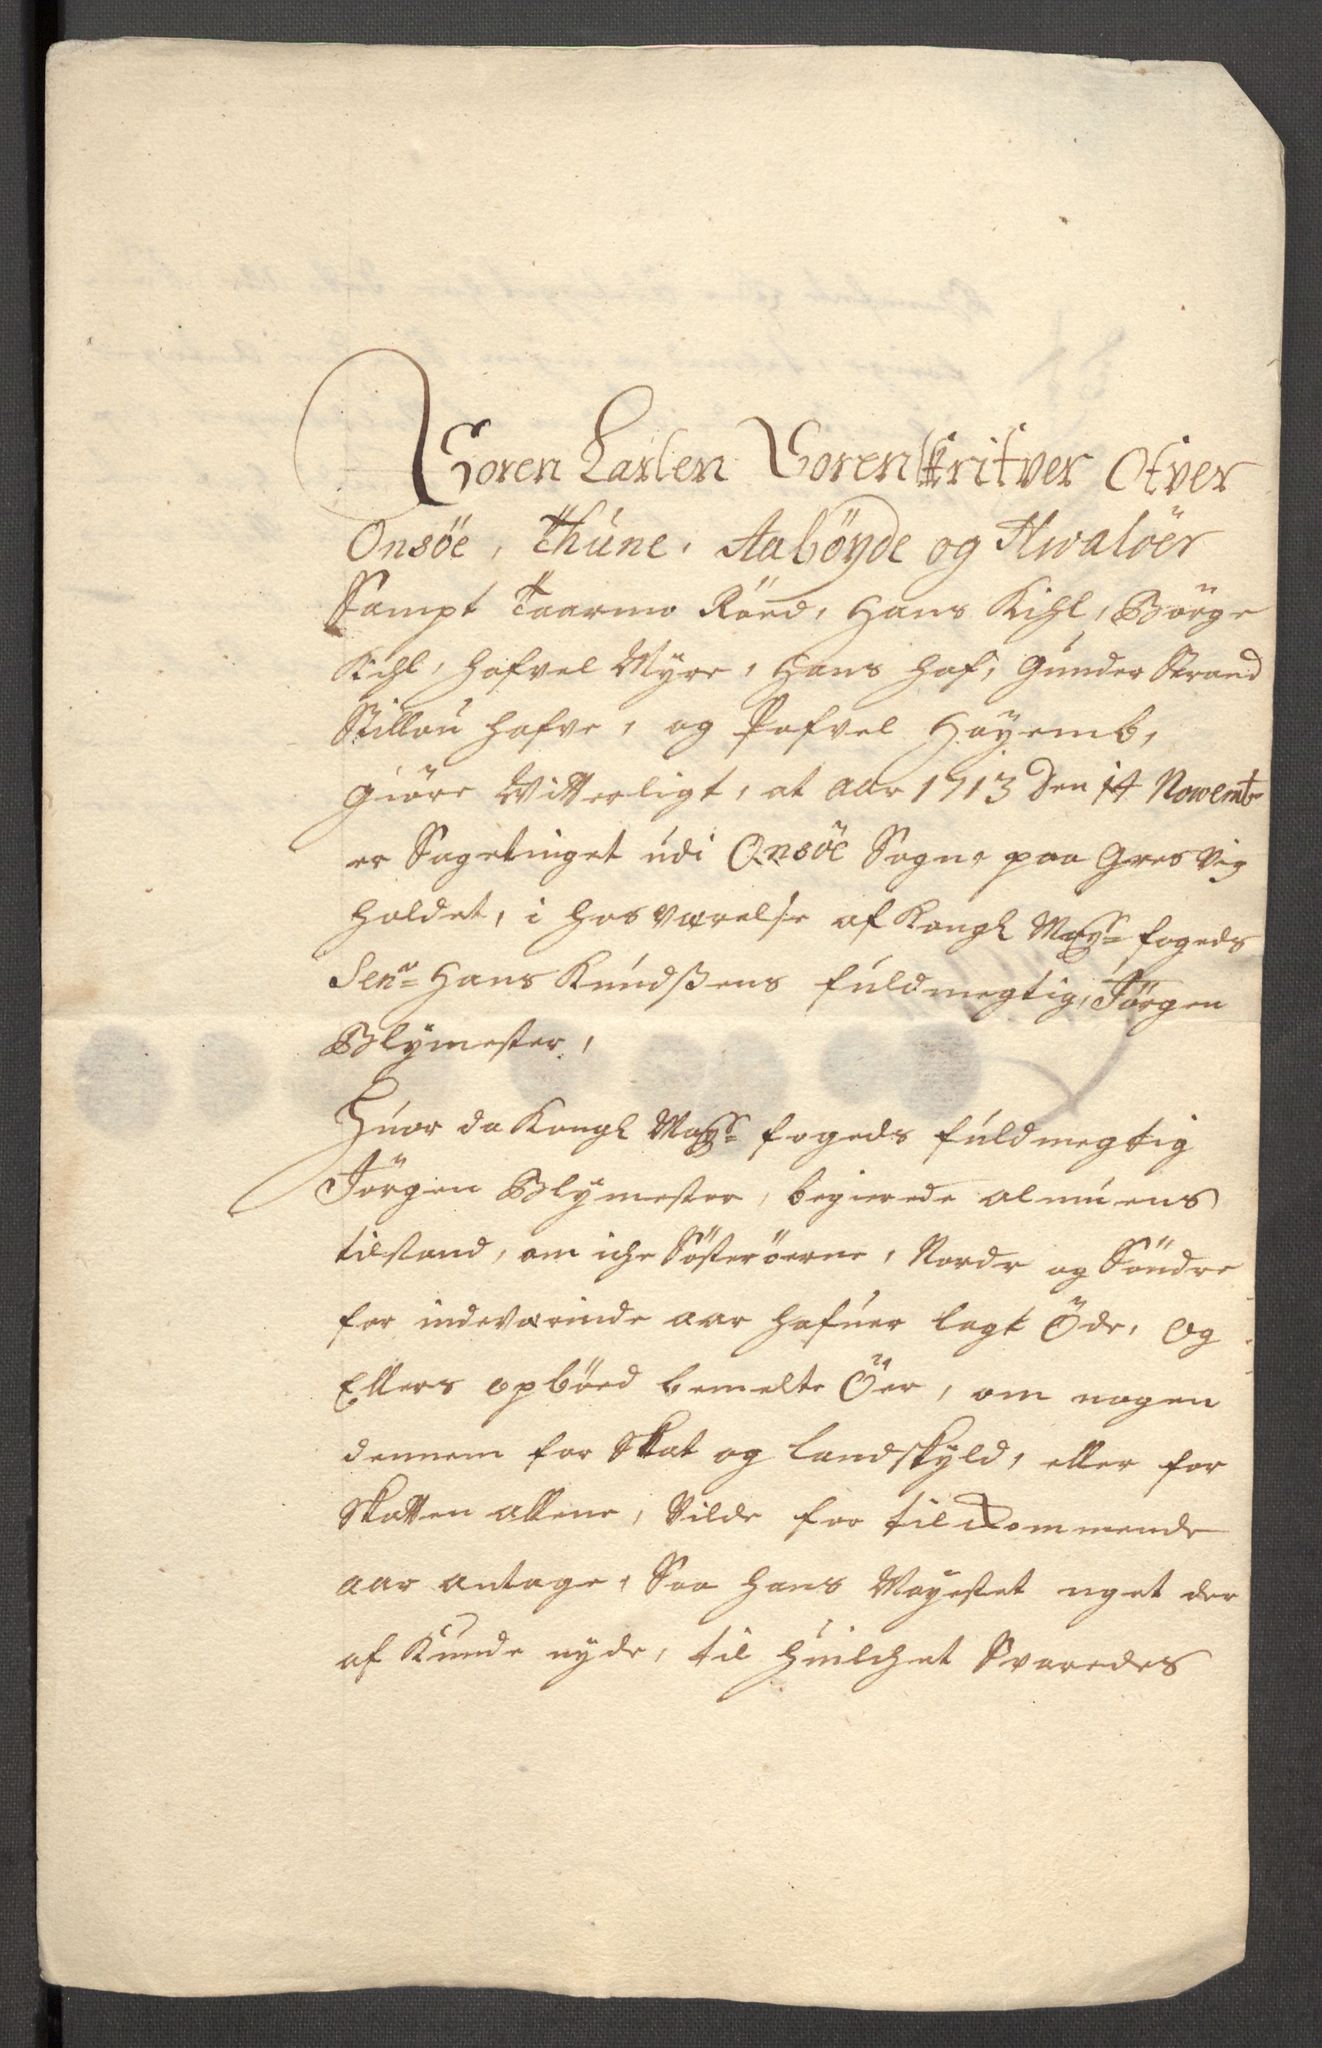 Søren Larsen Sorenskrifver Ofver
Onsöe, Thune, Aabøyde og Hwaløer
Sampt Taarmo Röed, Hans Kihl, Börge
Kihl, hafvel Myre, Hans haf, Gunder Strand
Stillou hafve, og Pofvel Höyemb,
giöre Witterligt, at aar 1713 den 14 Novemb
er Sagetinget udi Onsöe Sogn, paa Gresvig
holdet, i hosværelse af Kongl Mayts fogeds
Senr Hans Knudsßens fuldmegtig, Jörgen
Blymester,
Huor da Kongl Mayts fogeds fuldmegtig
Jörgen Blymester, begierede almuens
tilstand, om iche Söster öerne, Nordr og Söndre
for indeværinde aar hafuer lagt Öde, og
Ellers opböed bemelte Öer, om nogen
dennem for Skat og landskyld, eller for
Skatten allene, Vilde for tilkommende
aar antage, Saa hans Mayestet noget der
af Kunde nyde, til huilchet Svaredes